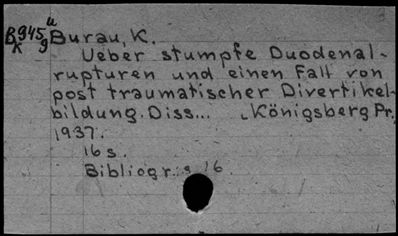 B945u Burau, K.
K g
Ueber stumpfe Duodenal-
rupturen und einen Fall von
post traumatischer Divertikel-
bildung. Diss... Königsberg Pr,
1937.
16 s.
Bibliogr.: s 16.